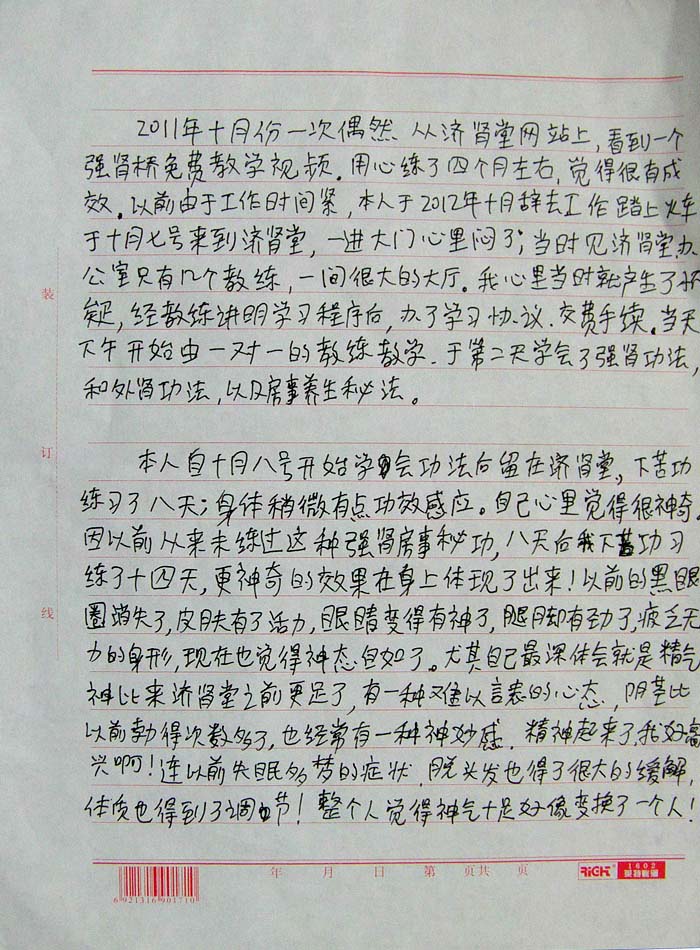 2011年十月份一次偶然 从济肾堂网站上，看到一个
强肾桥免费教学视频．用心练了四个月左右，觉得很有成
效．以前由于工作时间紧，本人于2012年十月辞去工作踏上火车
于十月七号来到济肾堂，一进大门心里闷了；当时见济肾堂办
公室只有几个教练，一间很大的大厅。我心里当时就产生了怀
疑，经教练讲明学习程序后，办了学习协议．交费手续．当天
下午开始由一对一的教练教学．于第二天学会了强肾功法，
和外肾功法，以及房事养生秘法。
本人自十月八号开始学会功法后留在济肾堂，下苦功
练习了八天；身体稍微有点功效感应。自己心里觉得很神奇．
因以前从来未练过这种强肾房事秘功，八天后我下苦功习
练了十四天，更神奇的效果在身上体现了出来！以前的黑眼
圈消失了，皮肤有了活力，眼睛变得有神了，腿脚却有劲了，疲乏无
力的身形，现在也觉得神态自如了。尤其自己最深体会就是精气
神比来济肾堂之前更足了，有一种难以言表的心态，阴茎比
以前勃得次数多了，也经常有一种神妙感．精神起来了，我好高
兴啊！连以前失眠多梦的症状．脱头发也得了很大的缓解，
体质也得到了调节！整个人觉得神气十足好像变换了一个人！
装
订
线
年 月 日 第 页共 页
6 921316 901710
RiGHT
1602
莱特